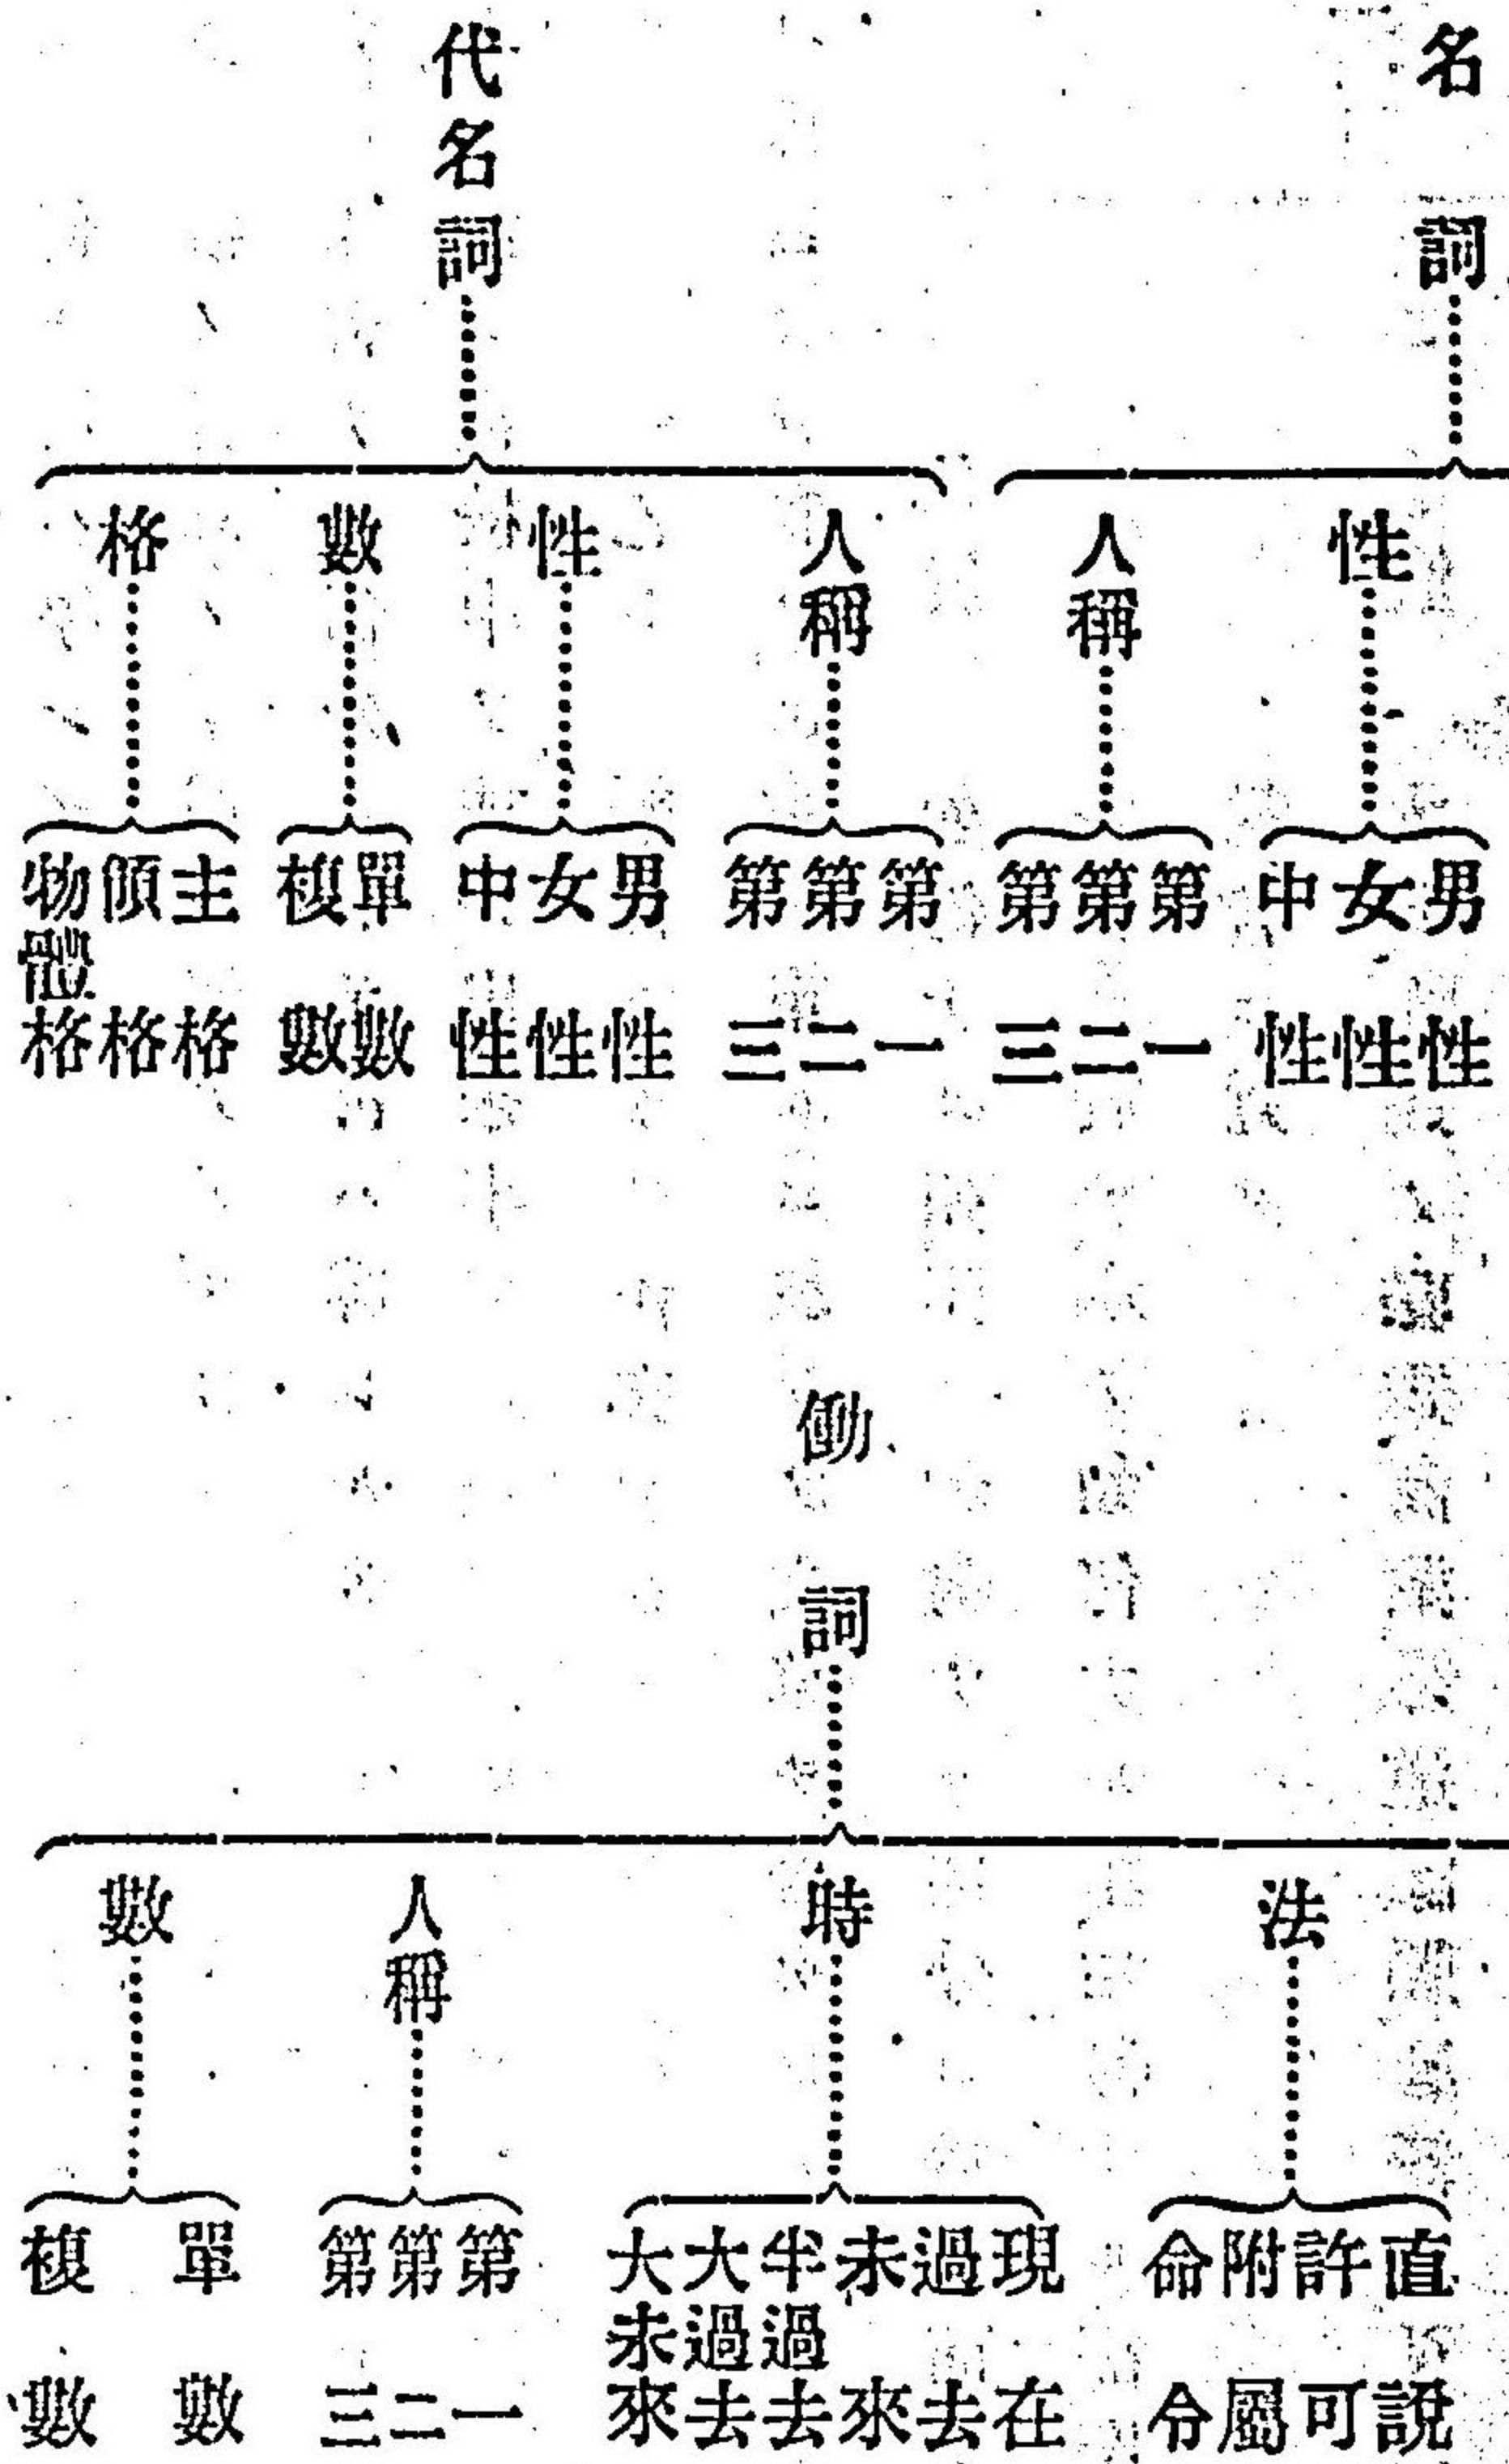 名詞
性
男性
女性
中性
人稱
第一
第二
第三
代名詞
人稱
第一
第二
第三
性
男性
女性
中性
數
單數
複數
格
主格
物體格
働詞
法
直說
許可
附屬
命令
時
現在
過去
未來
半過去
大過去
大未來
人稱
第一
第二
第三
數
單數
複數